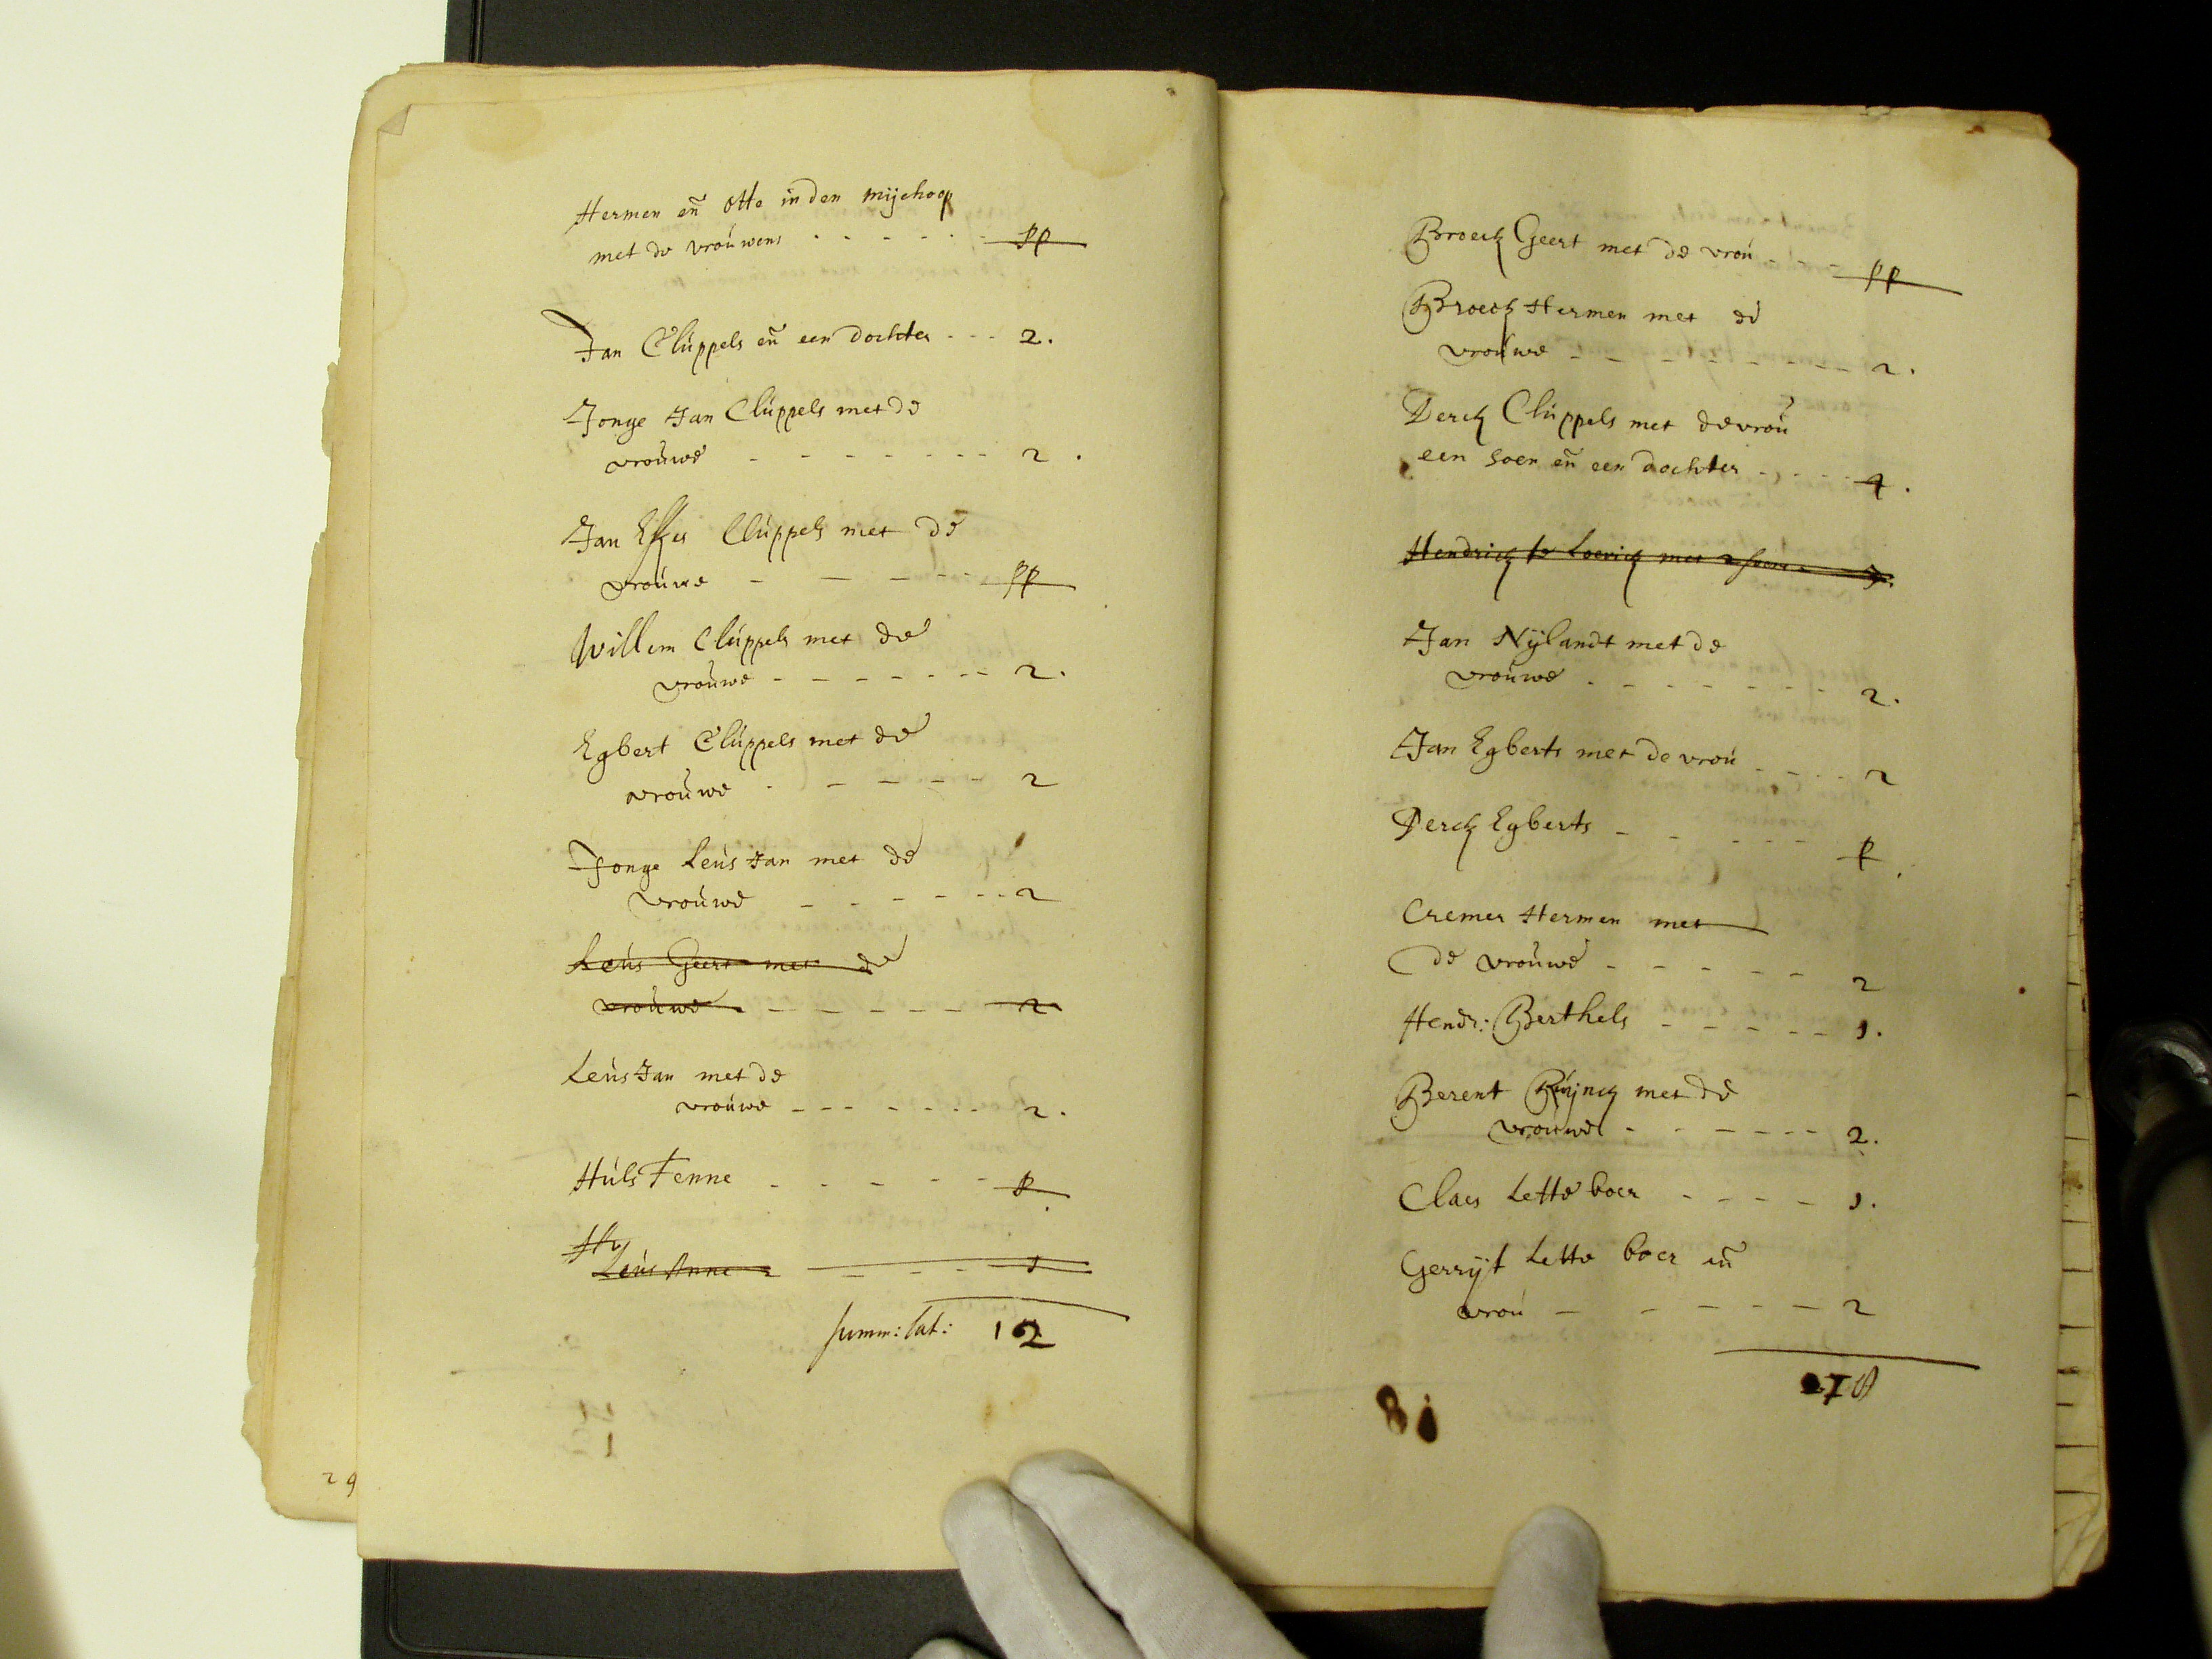 Hermen eñ Otto in den mijehoop
met de vrouwens - - - - - pp
Jan Clüppels eñ een dochter - - - 2.
Jonge Jan Clüppels met de
vrouwe - - - - - - - 2.
Jan Clüppels met de
vrouwe - - - - - pp
Willem Clüppels met de
vrouwe - - - - - - 2.
Egbert Clüppels met de
vrouwe - - - - - 2
Jonge Leus Jan met de
vrouwe - - - - - - 2
Leus Geert met de
vrouwe - - - - - - 2
Leus Jan met de
vrouwe - - - - - - 2.
Huls Fenne - - - - - p
Leus Anne - - - - 1
summ: lat: 12
29
Broeck Geert met de vrou - - - pp
Broeck Hermen met de
vrouwe - - - - - - - - 2.
Derck Clüppels met de vrou
een soen eñ een dochter - - - - 4.
Hendrick te Loevick met 2
Jan Nijlandt met de
vrouwe - - - - - - - 2.
Jan Egberts met de vrou - - - - 2
Derck Egberts - - - - - p
Cremer Hermen met
de vrouwe - - - - - - 2
Hendr: Berthels - - - - - 1.
Berent met de
vrouwe - - - - - - 2.
Claes Lette boer - - - - 1.
Gerrijt Lette boer eñ
vrou - - - - - - 2
18
8